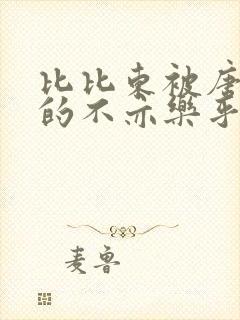 比比东被唐
的不亦乐乎
麦鲁